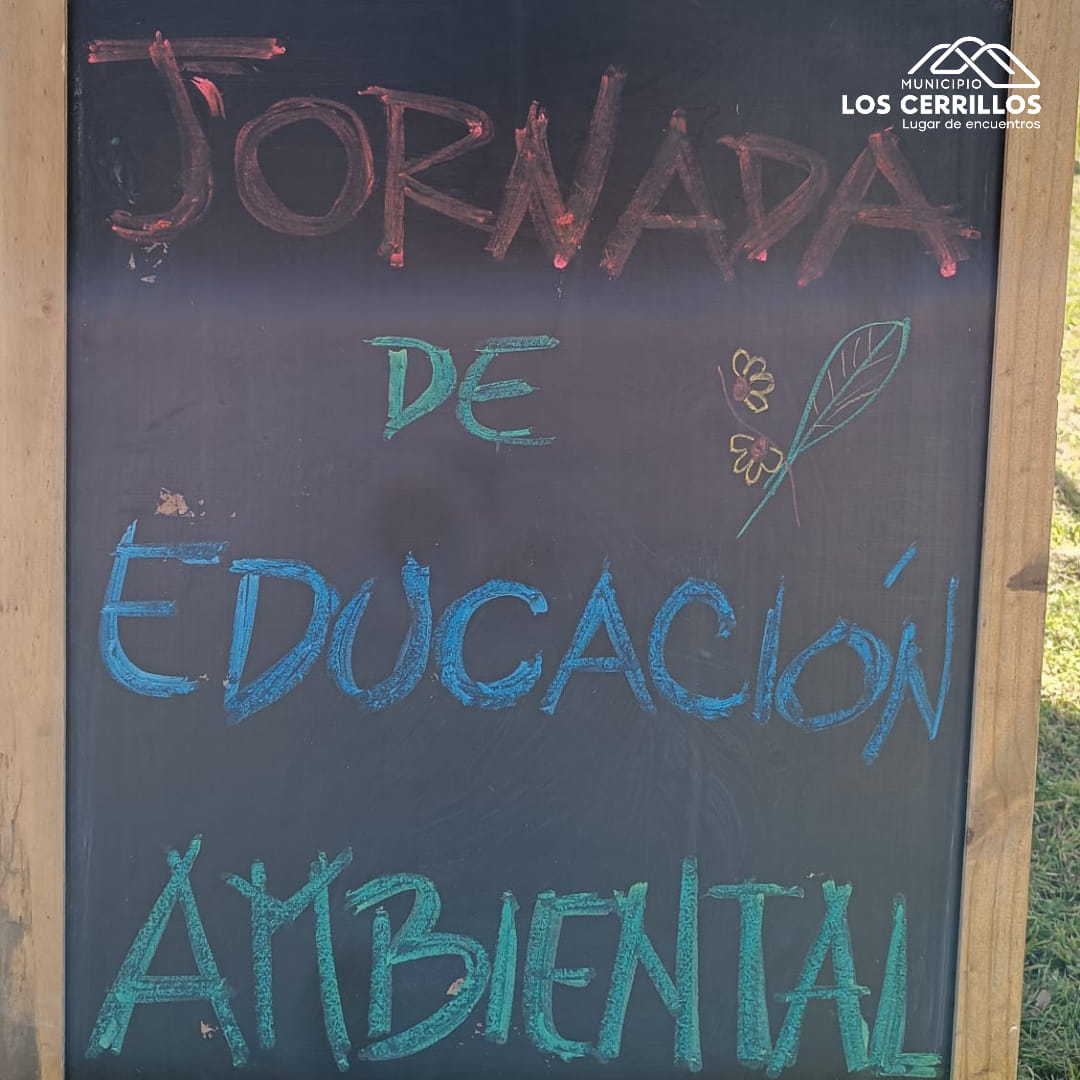 MUNICIPIO
LOS CERRILLOS
Lugar de encuentros
JORNADA
DE
EDUCACIÓN
AMBIENTAL